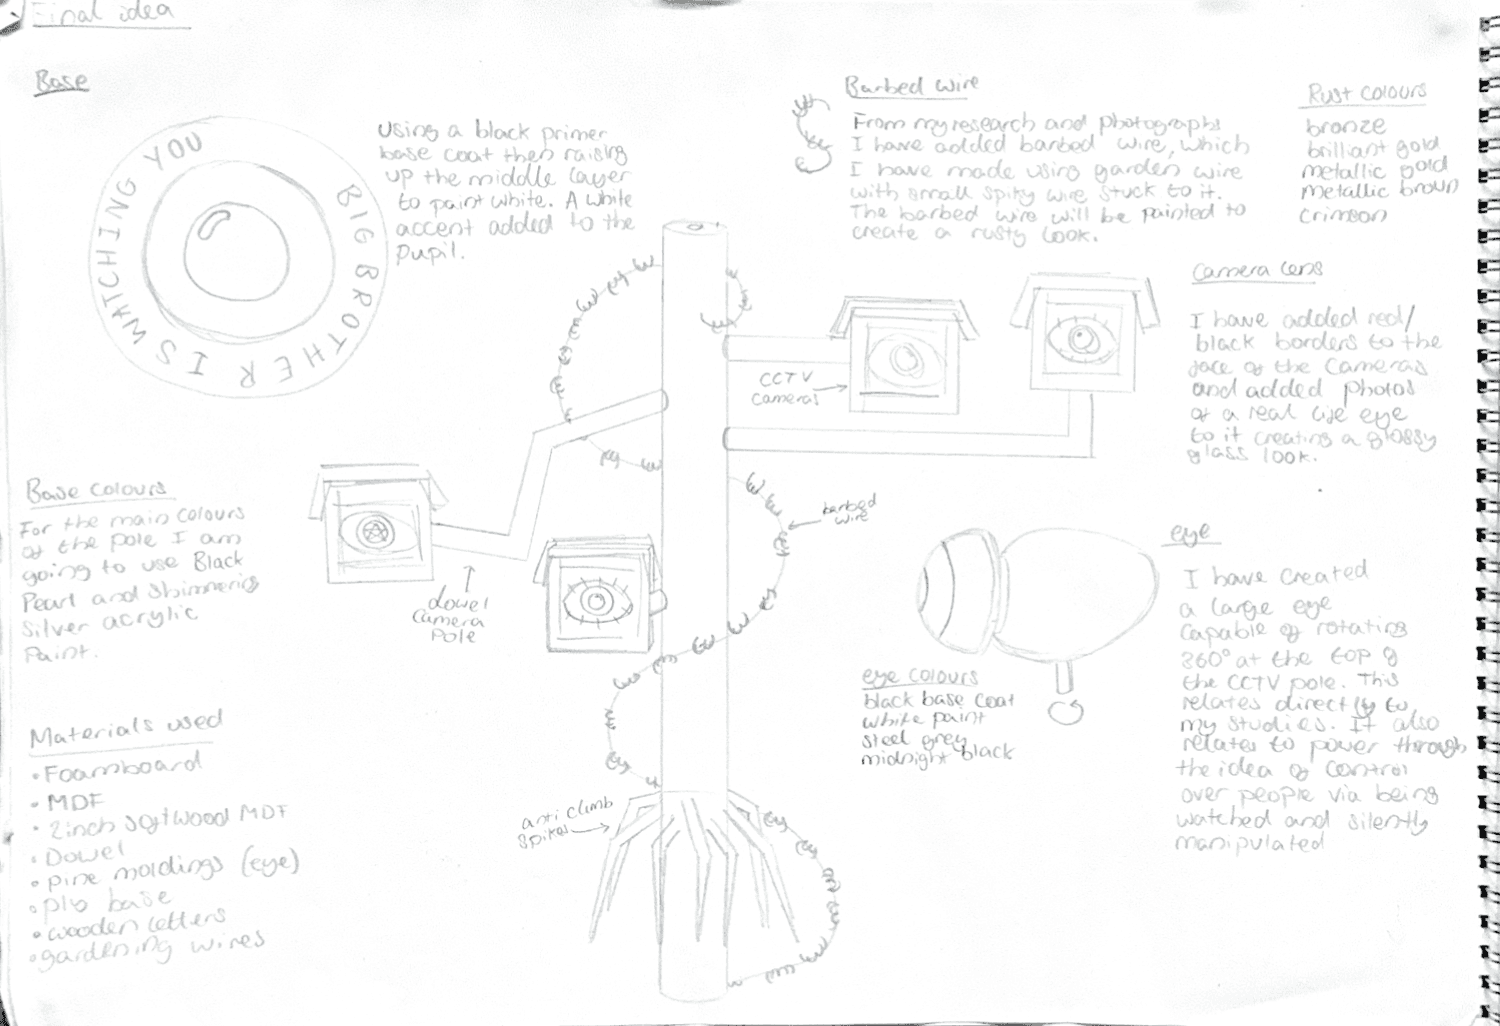 Final idea
Base
BIG BROTHER IS WATCHING YOU
Using a black primer
base coat then raising
up the middle layer
to paint white. A white
accent added to the
pupil.
Barbed wire
From my research and photographs
I have added barbed wire, which
I have made using garden wire
with small spiky wire stuck to it.
The barbed wire will be painted to
create a rusty look.
Rust colours
bronze
brilliant gold
metallic gold
metallic brown
crimson
Camera lens
I have added red/
black borders to the
face of the cameras
and added photos
of a real life eye
to it creating a glossy
glass look.
CCTV
cameras
Base colours
For the main colours
of the pole I am
going to use Black
Pearl and Shimmering
Silver acrylic
Paint.
dowel
camera
pole
barbed
wire
eye
I have created
a large eye
capable of rotating
360° at the top of
the CCTV pole. This
relates directly to
my studies. It also
relates to power through
the idea of control
over people via being
watched and silently
manipulated
eye colours
black base coat
white paint
steel grey
midnight black
Materials used
• Foamboard
• MDF
• 2inch softwood MDF
• Dowel
• pine moldings (eye)
• ply base
• wooden letters
• gardening wires
anti climb
spikes